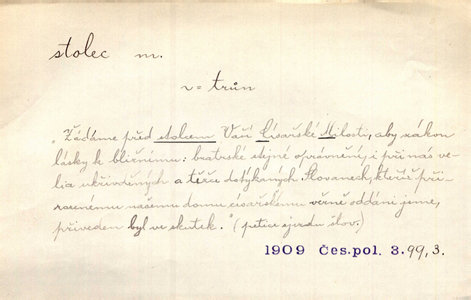 stolec m.
v = trůn
"Žádáme před stolcem Vaší Císařské Milosti, aby zákon
lásky k bližnímu: bratrské stejné oprávnění, i při nás ve-
lia ukřivděných a těžce dotýkaných Slovanech, kteří při-
rozenému našemu domu císařskému věrně oddáni jsme,
přiveden byl ve skutek." (petice sjezdu slov.)
1909 Čes.pol. 3.99,3.